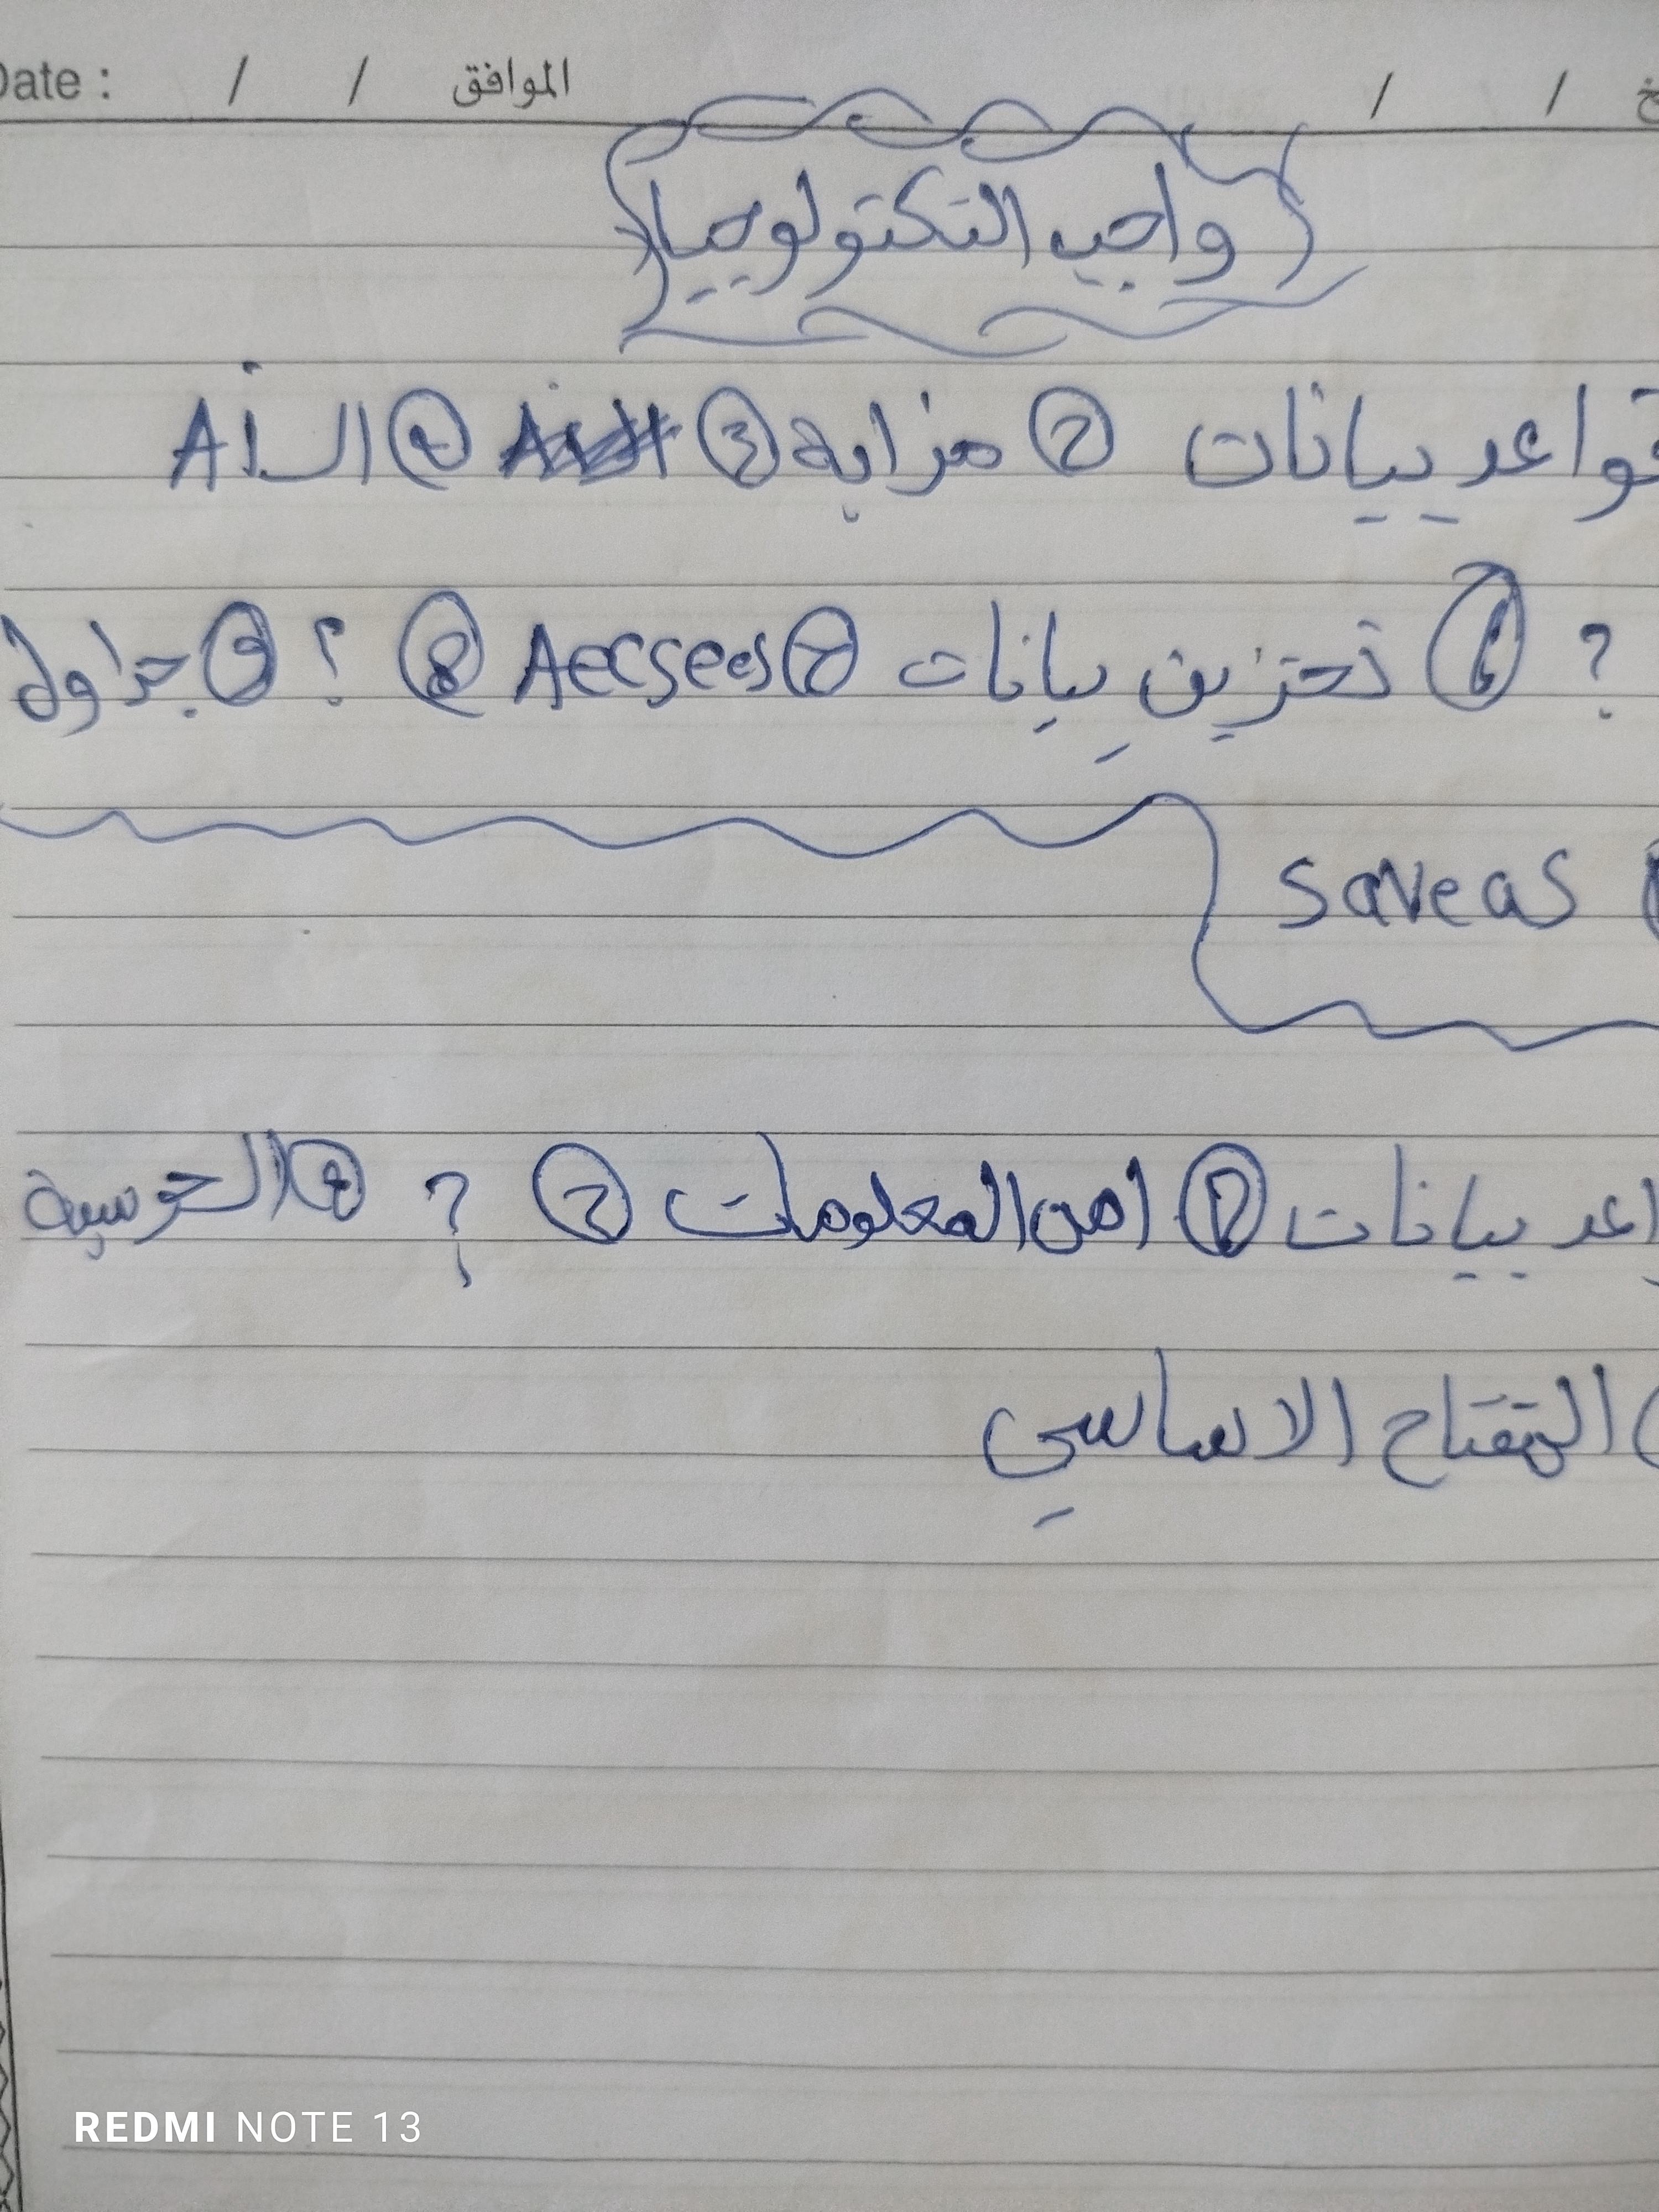 Date : / / الموافق / /
واجب التكنولوجيا
قواعد بيانات ② مزايه ③ ④ الـ Ai
? ⑥ تخزين بيانات ⑦ Aecsees ⑧ ؟ ⑨ جداول
save as
اعد بيانات ② امن المعلومات ③ ? ④ الحوسبة
المفتاح الاساسي
REDMI NOTE 13